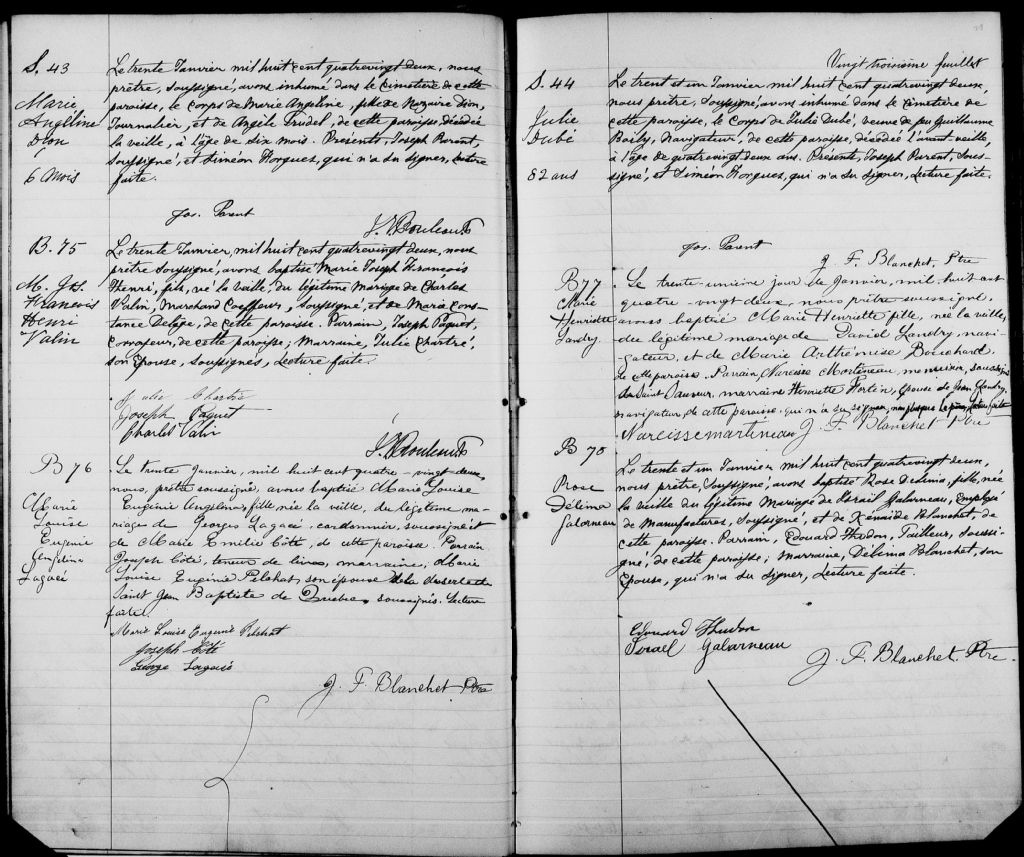 S. 43
Marie
Angéline
Dion
6 Mois
Le trente Janvier mil huit cent quatrevingt deux, nous
prêtre, soussigné, avons inhumé dans le cimetière de cette
paroisse, le corps de Marie Angéline, fille de Nazaire Dion,
Journalier, et de Angèle Trudel, de cette paroisse, décédée
la veille, à l'âge de six mois. Présents, Joseph Parent,
soussigné, et Siméon Horgues, qui n'a su signer, lecture
faite.
Jos. Parent
B. 75
M. Jph
François
Henri
Valin
Le trente Janvier, mil huit cent quatrevingt deux, nous
prêtre soussigné, avons baptisé Marie Joseph François
Henri, fils, né la veille, du légitime mariage de Charles
Valin, Marchand Coeffeur, soussigné, et de Marie Cons-
tance Delage, de cette paroisse. Parrain, Joseph Paquet,
Corroyeur, de cette paroisse; Marraine, Julie Chartré,
son Epouse, soussignés, Lecture faite.
Julie Chartré
Joseph Paquet
Charles Valin
B 76
Marie
Louise
Eugénie
Angelina
Lagacé
Le trente Janvier, mil huit cent quatre-vingt-deux,
nous, prêtre soussigné, avons baptisé Marie Louise
Eugénie Angelina, fille, née la veille, du légitime ma-
riage de Georges Lagacé, cordonnier, soussigné et
de Marie Emilie Côté, de cette paroisse. Parrain
Joseph Côté, teneur de livres, marraine, Marie
Louise Eugénie Pelchat, son épouse de la desserte de
Saint Jean Baptiste de Québec, soussignés. Lecture
faite.
Marie Louise Eugénie Pelchat
Joseph Côté
George Lagacé
J. F. Blanchet Ptre
Vingt troisième feuillet
S. 44
Julie
Dubé
82 ans
Le trent et un Janvier mil huit cent quatrevingt deux,
nous prêtre, soussigné, avons inhumé dans le cimetière de
cette paroisse, le corps de Julie Dubé, veuve de feu Guillaume
Boily, Navigateur, de cette paroisse, décédée l'avant veille,
à l'âge de quatrevingt deux ans. Présents, Joseph Parent, sous-
signé, et Siméon Horgues, qui n'a su signer, Lecture faite.
Jos. Parent
J. F. Blanchet, Ptre
B 77
Marie
Henriette
Landry
Le trente-unième jour de Janvier, mil huit cent
quatre-vingt deux, nous prêtre soussigné,
avons baptisé Marie Henriette fille, née la veille,
du légitime mariage de David Landry, navi-
gateur, et de Marie Arthémise Bouchard
de cette paroisse. Parrain, Narcisse Martineau, menuisier, soussigné
de Saint Sauveur, marraine Henriette Fortin, épouse de Jean Landry,
navigateur, de cette paroisse qui n'a su signer, non plus que le père, lecture faite
Narcisse martineau J. F. Blanchet Ptre
B 78
Rose
Délima
Galarneau
Le trente et un Janvier mil huit cent quatrevingt deux,
nous prêtre, soussigné, avons baptisé Rose Délima, fille, née
la veille du légitime Mariage de Israël Galarneau, Employé
de Manufactures, soussigné, et de Xénaïde Blanchet, de
cette paroisse. Parrain, Edouard Hudon, Tailleur, soussi-
gné, de cette paroisse; Marraine, Délima Blanchet, son
Epouse, qui n'a su signer, Lecture faite.
Edouard Hudon
Israel Galarneau
J. F. Blanchet. Ptre.